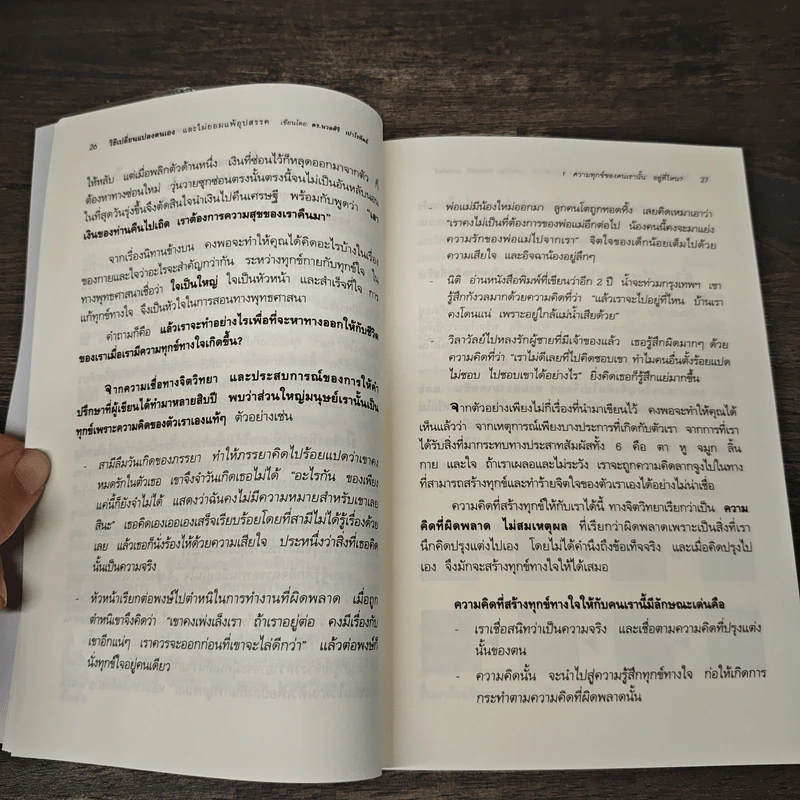 26 วิธีเปลี่ยนแปลงตนเอง และไม่ยอมแพ้อุปสรรค เขียนโดย: ดร.นวลศิริ เปาโรหิตย์
ให้หลับ แต่เมื่อพลิกตัวด้านหนึ่ง เงินที่ซ่อนไว้ก็หลุดออกมาจากตัว ก็
ต้องหาทางซ่อนใหม่ วุ่นวายซุกซ่อนตรงนั้นตรงนี้จนไม่เป็นอันหลับนอน
ในที่สุดวันรุ่งขึ้นจึงตัดสินใจนำเงินไปคืนเศรษฐี พร้อมกับพูดว่า "เอา
เงินของท่านคืนไปเถิด เราต้องการความสุขของเราคืนมา"
จากเรื่องนิทานข้างบน คงพอจะทำให้คุณได้คิดอะไรบ้างในเรื่อง
ของกายและใจว่าอะไรจะสำคัญกว่ากัน ระหว่างทุกข์กายกับทุกข์ใจ ใน
ทางพุทธศาสนาเชื่อว่า ใจเป็นใหญ่ ใจเป็นหัวหน้า และสำเร็จที่ใจ การ
แก้ทุกข์ทางใจ จึงเป็นหัวใจในการสอนทางพุทธศาสนา
คำถามก็คือ แล้วเราจะทำอย่างไรเพื่อที่จะหาทางออกให้กับชีวิต
ของเราเมื่อเรามีความทุกข์ทางใจเกิดขึ้น?
จากความเชื่อทางจิตวิทยา และประสบการณ์ของการให้คำ
ปรึกษาที่ผู้เขียนได้ทำมาหลายสิบปี พบว่าส่วนใหญ่มนุษย์เรานั้นเป็น
ทุกข์เพราะความคิดของตัวเราเองแท้ๆ ตัวอย่างเช่น
- สามีลืมวันเกิดของภรรยา ทำให้ภรรยาคิดไปร้อยแปดว่าเขาคง
หมดรักในตัวเธอ เขาจึงจำวันเกิดเธอไม่ได้ "อะไรกัน ของเพียง
แค่นี้ก็ยังจำไม่ได้ แสดงว่าฉันคงไม่มีความหมายสำหรับเขาเลย
สินะ" เธอคิดเองเออเองเสร็จเรียบร้อยโดยที่สามีไม่ได้รู้เรื่องด้วย
เลย แล้วเธอก็นั่งร้องไห้ด้วยความเสียใจ ประหนึ่งว่าสิ่งที่เธอคิด
นั้นเป็นความจริง
- หัวหน้าเรียกต่อพงษ์ไปตำหนิในการทำงานที่ผิดพลาด เมื่อถูก
ตำหนิเขาจึงคิดว่า "เขาคงเพ่งเล็งเรา ถ้าเราอยู่ต่อ คงมีเรื่องกับ
เขาอีกแน่ๆ เราควรจะออกก่อนที่เขาจะไล่ดีกว่า" แล้วต่อพงษ์ก็
นั่งทุกข์ใจอยู่คนเดียว
1 ความทุกข์ของคนเรานั้น อยู่ที่ไหน? 27
- พ่อแม่มีน้องใหม่ออกมา ลูกคนโตถูกทอดทิ้ง เลยคิดเหมาเอาว่า
"เราคงไม่เป็นที่ต้องการของพ่อแม่อีกต่อไป น้องคนนี้คงจะมาแย่ง
ความรักของพ่อแม่ไปจากเรา" จิตใจของเด็กน้อยเต็มไปด้วย
ความเสียใจ และอิจฉาน้องอยู่ลึกๆ
- นิติ อ่านหนังสือพิมพ์ที่เขียนว่าอีก 2 ปี น้ำจะท่วมกรุงเทพฯ เขา
รู้สึกกังวลมากด้วยความคิดที่ว่า "แล้วเราจะไปอยู่ที่ไหน บ้านเรา
คงโดนแน่ เพราะอยู่ใกล้แม่น้ำเสียด้วย"
- วิลาวัลย์ไปหลงรักผู้ชายที่มีเจ้าของแล้ว เธอรู้สึกผิดมากๆ ด้วย
ความคิดที่ว่า "เราไม่ดีเลยที่ไปคิดชอบเขา ทำไมคนอื่นตั้งร้อยแปด
ไม่ชอบ ไปชอบเขาได้อย่างไร" ยิ่งคิดเธอก็รู้สึกแย่มากขึ้น
จากตัวอย่างเพียงไม่กี่เรื่องที่นำมาเขียนไว้ คงพอจะทำให้คุณได้
เห็นแล้วว่า จากเหตุการณ์เพียงบางประการที่เกิดกับตัวเรา จากการที่เรา
ได้รับสิ่งที่มากระทบทางประสาทสัมผัสทั้ง 6 คือ ตา หู จมูก ลิ้น
กาย และใจ ถ้าเราเผลอและไม่ระวัง เราจะถูกความคิดลากจูงไปในทาง
ที่สามารถสร้างทุกข์และทำร้ายจิตใจของตัวเราเองได้อย่างไม่น่าเชื่อ
ความคิดที่สร้างทุกข์ให้กับเราได้นี้ ทางจิตวิทยาเรียกว่าเป็น ความ
คิดที่ผิดพลาด ไม่สมเหตุผล ที่เรียกว่าผิดพลาดเพราะเป็นสิ่งที่เรา
นึกคิดปรุงแต่งไปเอง โดยไม่ได้คำนึงถึงข้อเท็จจริง และเมื่อคิดปรุงไป
เอง จึงมักจะสร้างทุกข์ทางใจให้ได้เสมอ
ความคิดที่สร้างทุกข์ทางใจให้กับคนเรานี้มีลักษณะเด่นคือ
- เราเชื่อสนิทว่าเป็นความจริง และเชื่อตามความคิดที่ปรุงแต่ง
นั้นของตน
- ความคิดนั้น จะนำไปสู่ความรู้สึกทุกข์ทางใจ ก่อให้เกิดการ
กระทำตามความคิดที่ผิดพลาดนั้น